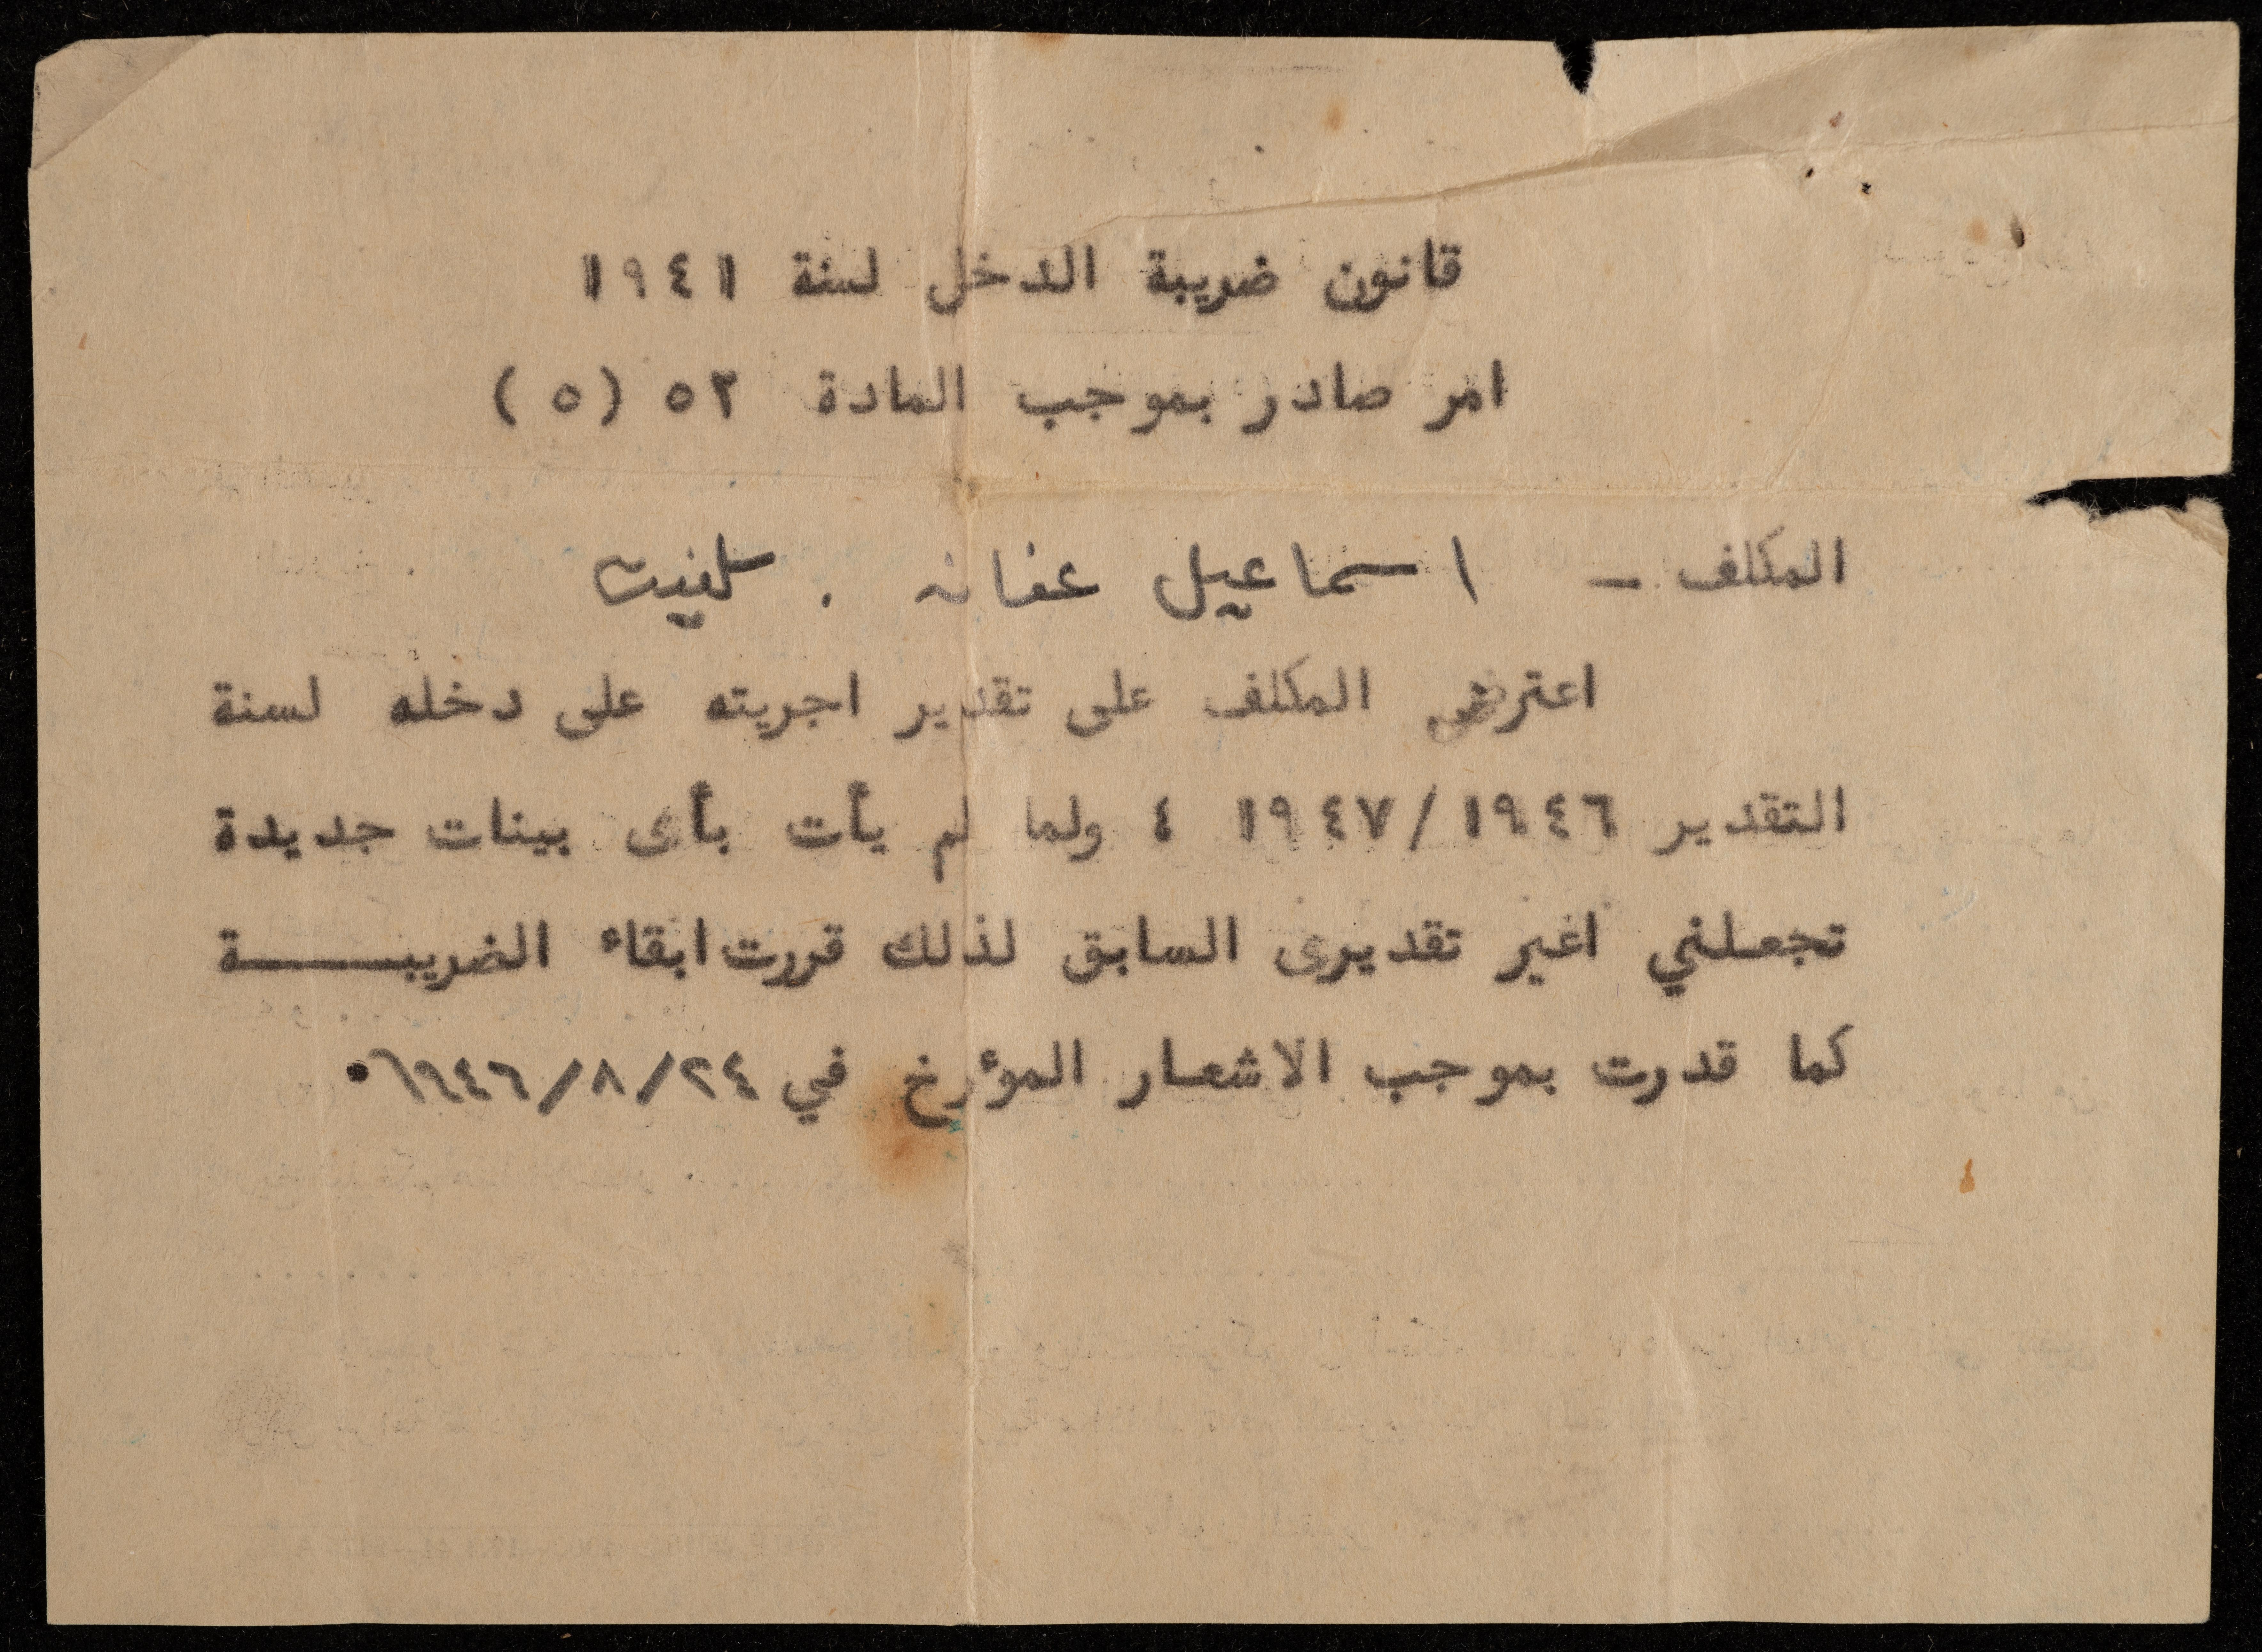 قانون ضريبة الدخل لسنة ١٩٤١
امر صادر بموجب المادة ٥٢ (٥)
المكلف - اسماعيل عفانه . سلفيت
اعترض المكلف على تقدير اجريته على دخله لسنة
التقدير ١٩٤٧/١٩٤٦ ، ولما لم يأت بأى بينات جديدة
تجعلني اغير تقديرى السابق لذلك قررت ابقاء الضريبـــــة
كما قدرت بموجب الاشعار المؤرخ في ١٩٤٦/٨/٢٤٠